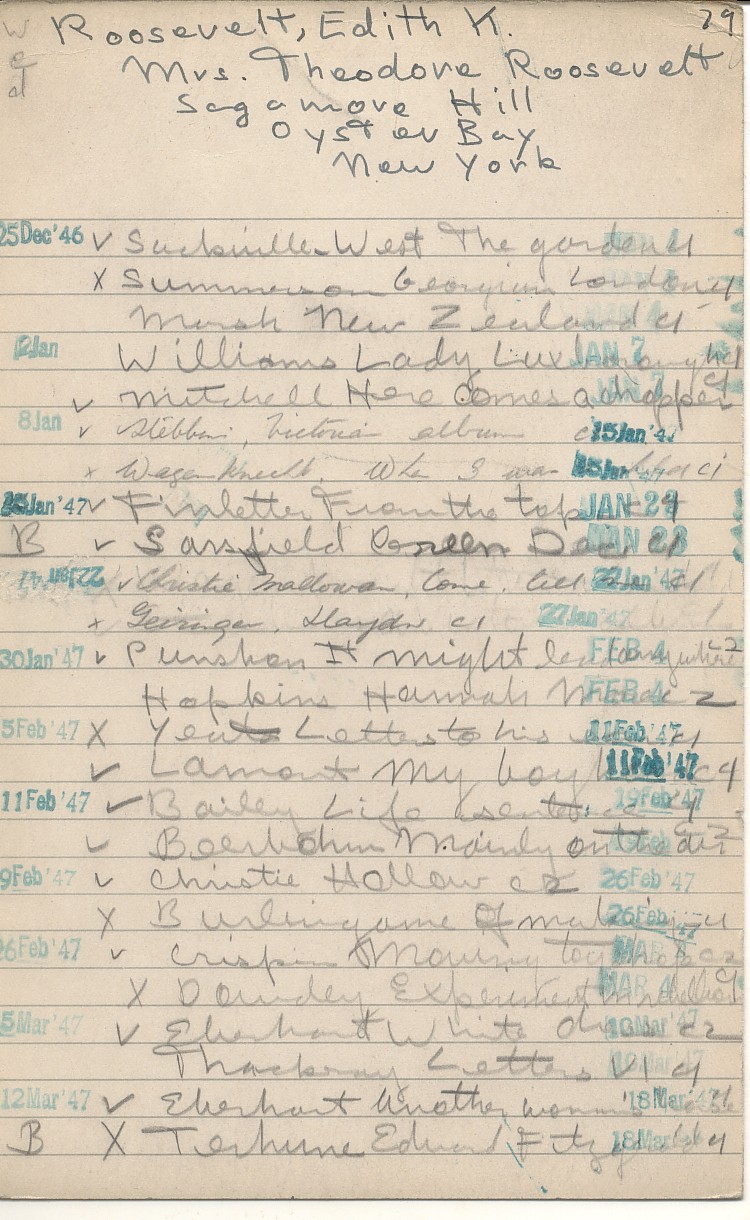 Wed Roosevelt, Edith K. 79
Mrs. Theodore Roosevelt
Sagamore Hill
Oyster Bay
New York
25Dec'46 ✓ Sackville-West The garden c1
X Summerson Georgian London c1
Marsh New Zealand c1
2Jan Williams Lady JAN 7
✓ Mitchell Here comes a chopper c1
8Jan ✓ Stebbins, Victorian album c 15Jan'47
x Wagenknecht. When I was 15Jan'47 c1
Jan'47 ✓ Finletter From the top JAN 29
B ✓ Sarsfield Green c1
22Jan'47 ✓ Christie Mallowan, Come, tell 22Jan'47 c1
x Geiringer, Haydn c1 27Jan'47
30Jan'47 ✓ Punshon It might lead anywhere c2 FEB 4
Hopkins Hannah FEB 4 2
5Feb'47 X Yeats Letters to his 11Feb'47
✓ Lamont My boyhood 11Feb'47 c1
11Feb'47 ✓ Bailey Life sentence 19Feb'47
✓ Beerbohm Mainly on the air c2
9Feb'47 ✓ Christie Hollow c2 26Feb'47
X Burlingame Of making 26Feb'47
26Feb'47 ✓ Crispin Moving toyshop c2 MAR
X Dowdey Experiment in rebellion c1 MAR 4
5Mar'47 ✓ Eberhart White dress c2 10Mar'47
Thackeray Letters V1 c1
12Mar'47 ✓ Eberhart Another woman's 18Mar'47
B X Terhune Edward Fitzgerald 18Mar